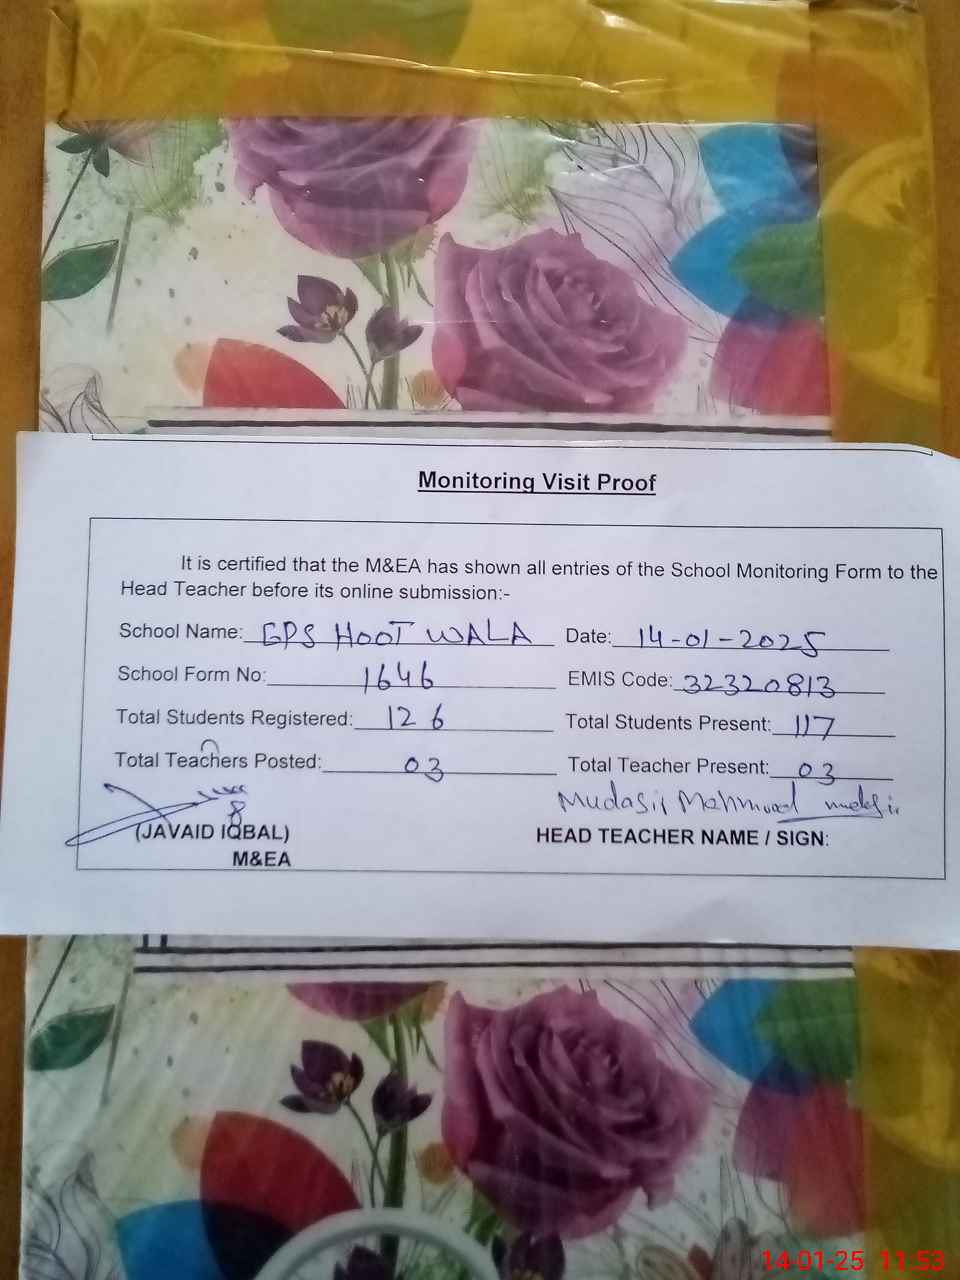 Monitoring Visit Proof
It is certified that the M&EA has shown all entries of the School Monitoring Form to the
Head Teacher before its online submission:-
School Name: GPS HOOT WALA Date: 14-01-2025
School Form No: 1646 EMIS Code: 32320813
Total Students Registered: 126 Total Students Present: 117
Total Teachers Posted: 03 Total Teacher Present: 03
Mudasir Mahmood
(JAVAID IQBAL) HEAD TEACHER NAME / SIGN:
M&EA
14-01-25 11:53